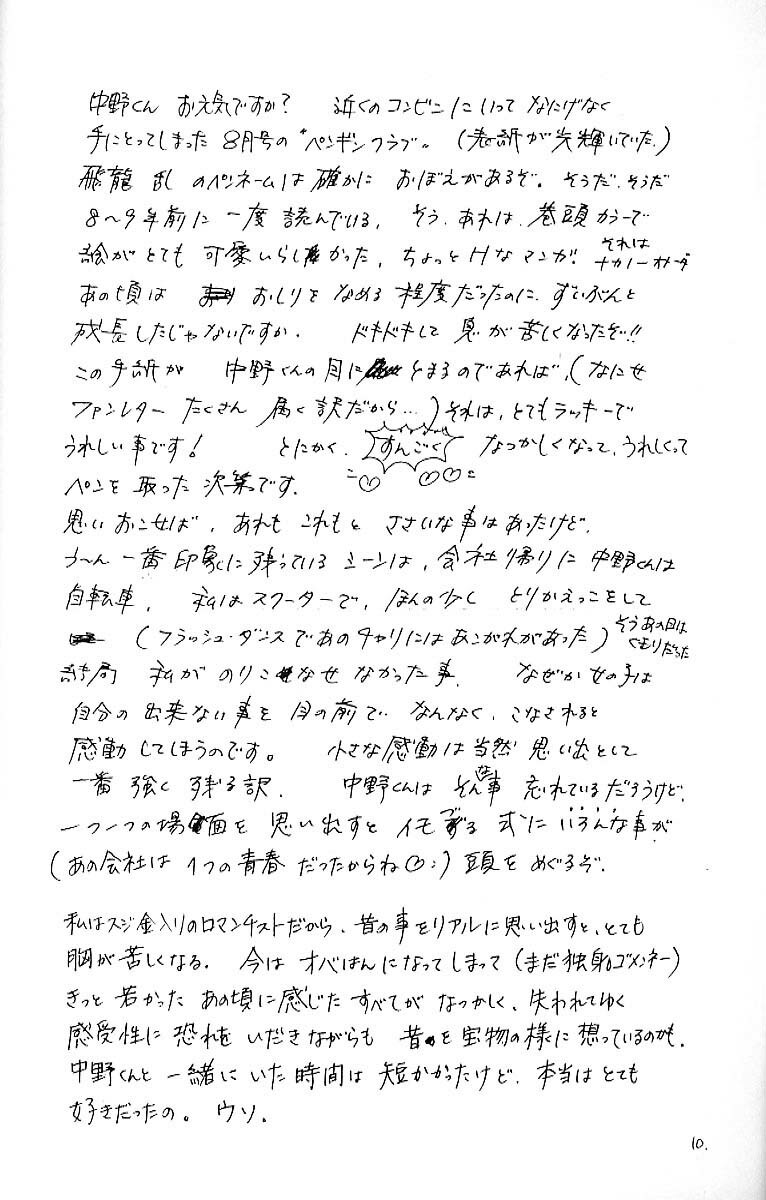 中野くん お元気ですか? 近くのコンビニにいって なにげなく
手にとってしまった 8月号の "ペンギンクラブ" (表紙が光輝いていた。)
飛龍 乱 のペンネームは 確かに おぼえがあるぞ。そうだ、そうだ
8〜9年前に 一度 読んでいる。 そう、あれは、巻頭カラーで
絵がとても 可愛いらしかった、ちょっとHなマンガ。 それは
ナカノーオサーダ
あの頃は おしりを なめる 程度だったのに、ずいぶんと
成長したじゃないですか。 ドキドキして 息が 苦しくなったぞ!!
この手紙が 中野くんの目に とまるのであれば、(なにせ
ファンレター たくさん 届く訳だから…)それは、とてもラッキーで
うれしい事です! とにかく、すんごく なつかしくなって、うれしくって
ペンを 取った 次第です。
思い おこせば、あれも これもと ささいな事はあったけど、
う〜ん 一番 印象に残っている シーンは、会社帰りに 中野くんは
自転車、 私はスクーターで、ほんの少し とりかえっこをして
(フラッシュ・ダンスであのチャリにはあこがれがあった) そうあの日は
くもりだった
結局 私が のりこなせなかった事。 なぜか女の子は
自分の 出来ない事を 目の前で なんなく、こなされると
感動してしまうのです。 小さな感動は当然 思い出として
一番 強く 残る訳。 中野くんは そんな事 忘れているだろうけど、
一つ一つの場面を 思い出すと イモづる式に いろんな事が
(あの会社は 1つの青春 だったからね♡:) 頭を めぐるぞ。
私はスジ金入りのロマンチストだから、昔の事をリアルに思い出すと、とても
胸が苦しくなる。 今は オバはんになってしまって(まだ独身。ゴメンネー)
きっと 若かった あの頃に感じた すべてが なつかしく、失われてゆく
感受性に 恐れを いだきながらも 昔を宝物の様に 想っているのかも。
中野くんと 一緒にいた時間は 短かかったけど、本当は とても
好きだったの。 ウソ。
10.